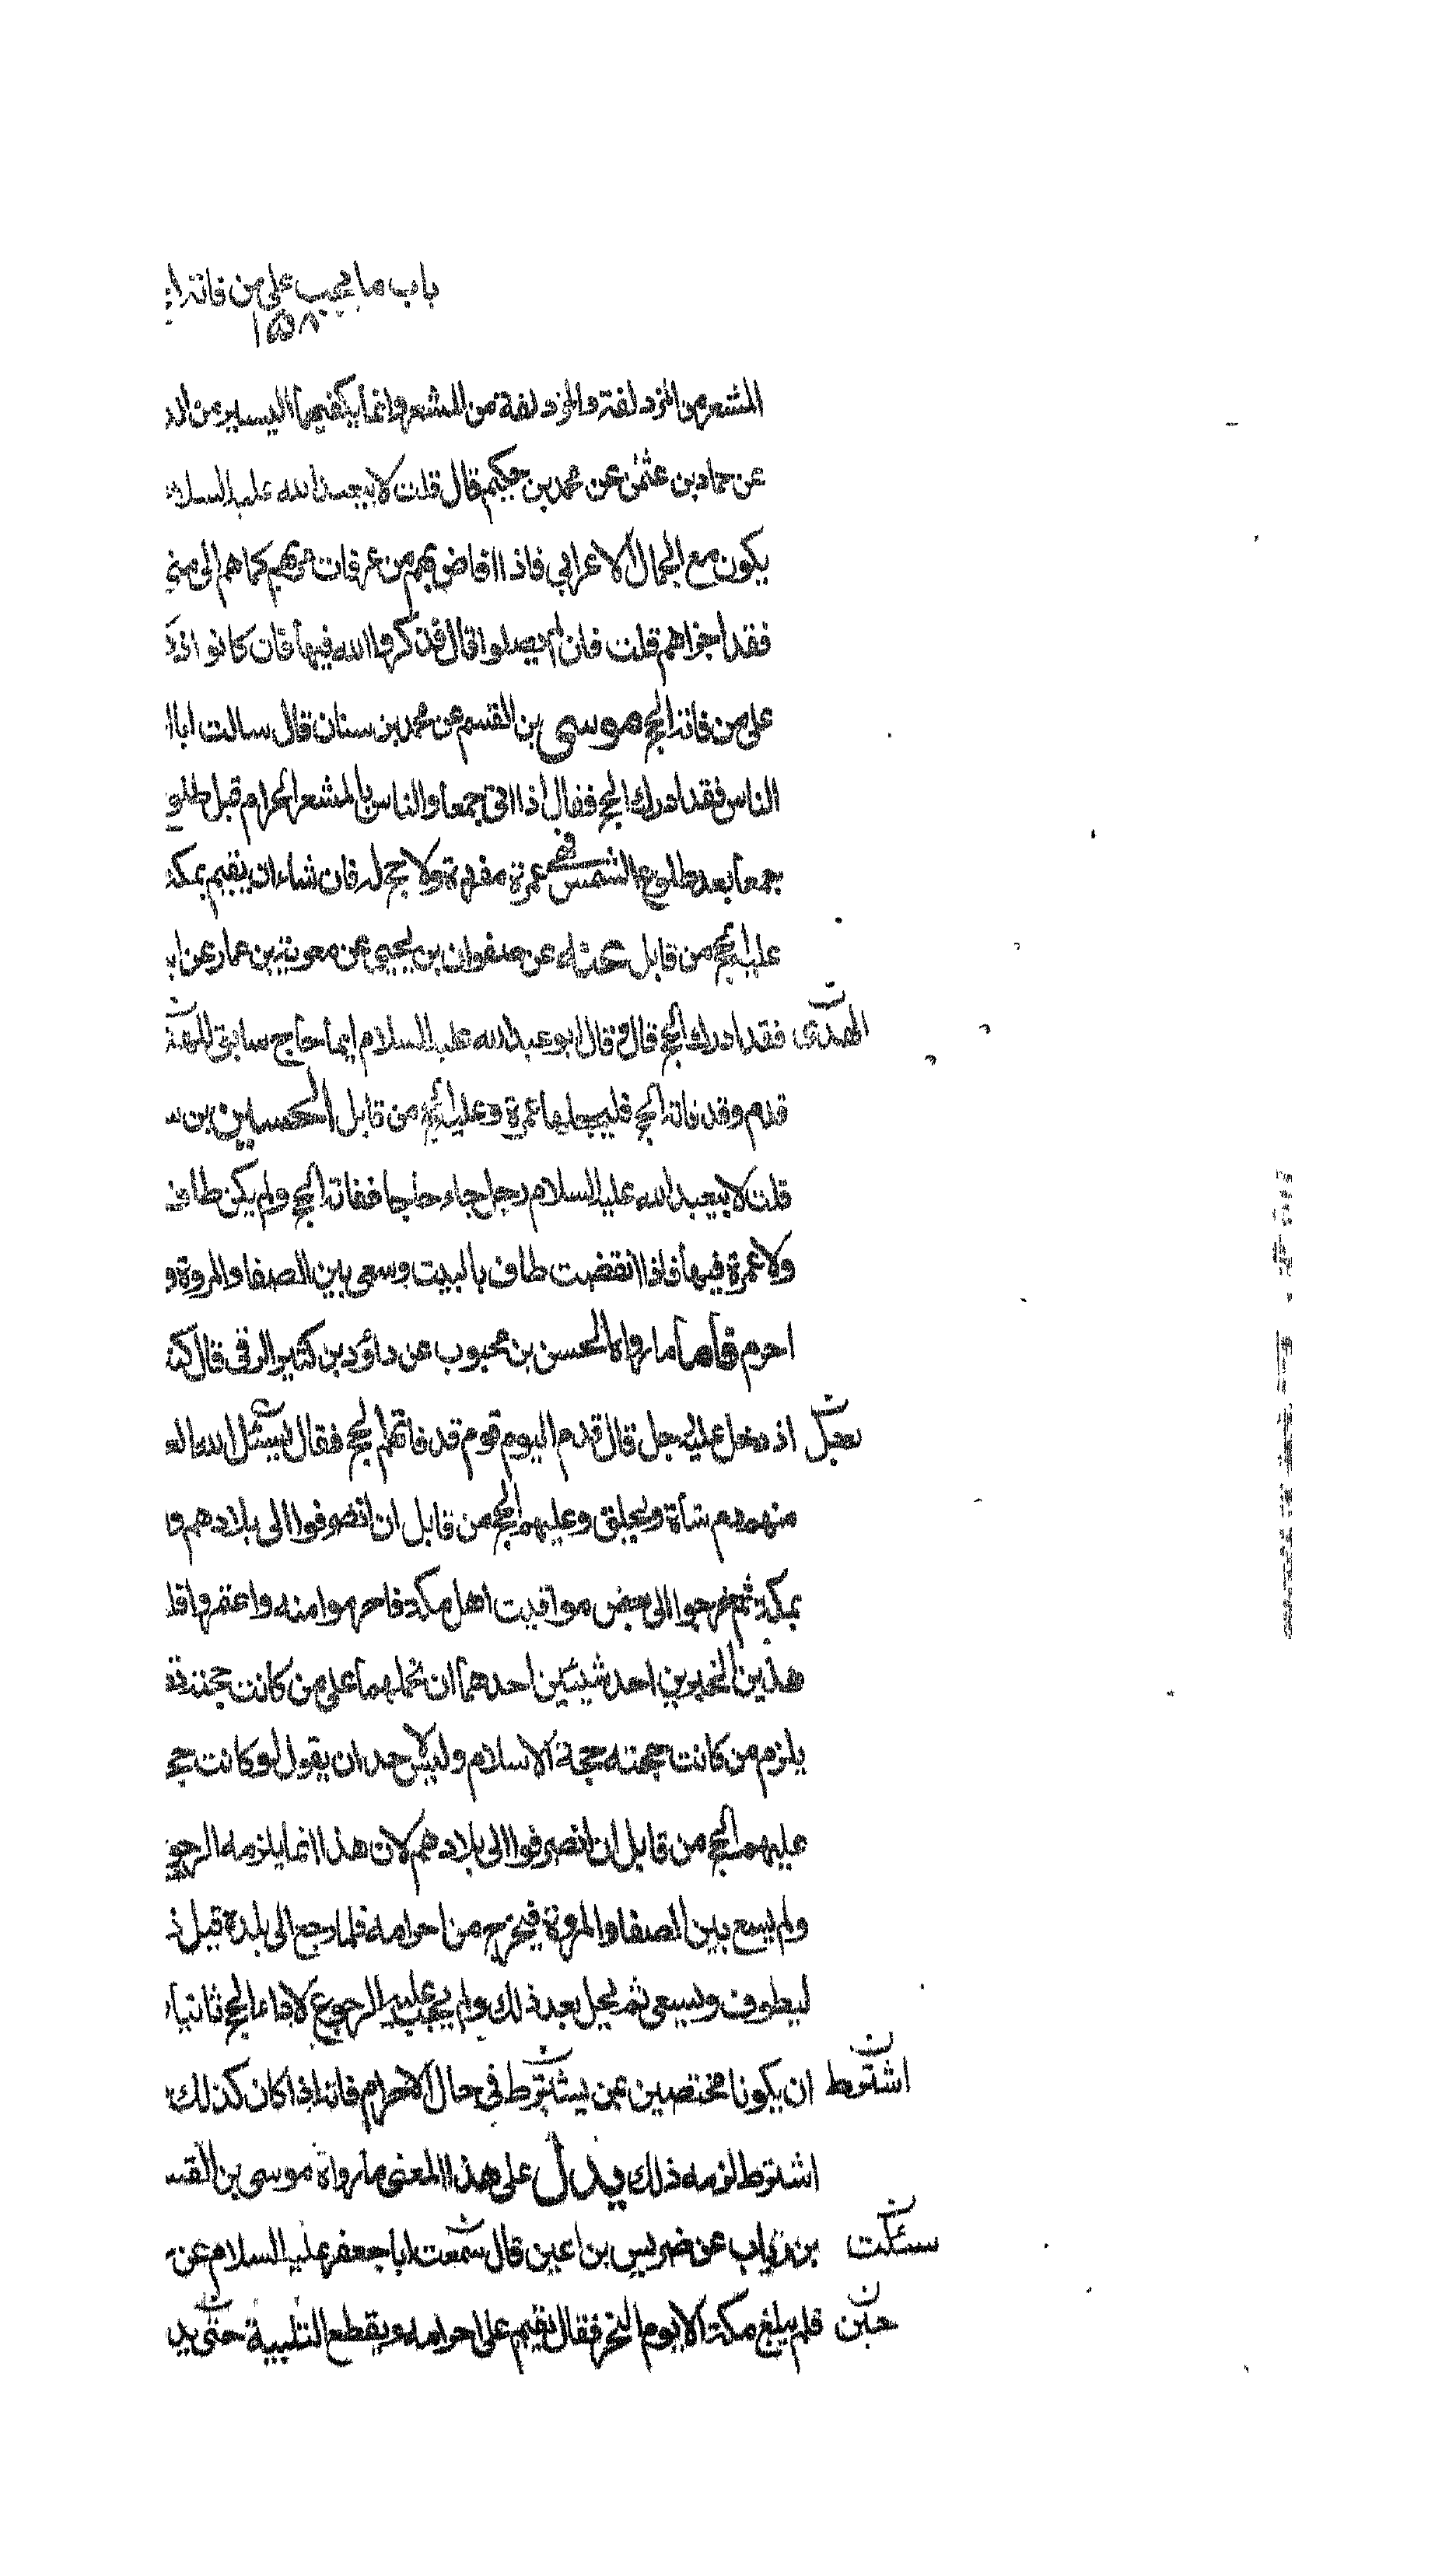 باب ما يجب على من فاته ا
١٥٨
المشعر من المزدلفة والمزدلفة من المشعر وانما يكفيهما اليسير من الد
عن حماد بن عثمن عن محمد بن حكيم قال قلت لابيعبد الله عليه السلام
يكون مع الجمال الاعرابي فاذا افاض بهم من عرفات مر بهم كما هم الى منى
فقد اجزاهم قلت فان لم يصلوا قال فذكروا الله فيها فان كانوا ذك
على من فاته الحج موسى بن القسم عن محمد بن سنان قال سالت ابا ا
الناس فقد ادرك الحج فقال اذا اتى جمعا والناس بالمشعر الحرام قبل طلوع
جمعا بعد طلوع الشمس فهى عمرة مفردة ولا حج له فان شاء ان يقيم بمكة
عليه الحج من قابل عنه عن صفوان بن يحيى عن معوية بن عمار عن ا
فقد ادرك الحج قال وقال ابو عبد الله عليه السلام ايما حاج سابق للهدى
قدم وقد فاته الحج فليجعلها عمرة وعليه الحج من قابل الحسين بن س
قلت لابيعبد الله عليه السلام رجل جاء حاجا ففاته الحج ولم يكن طاف
ولا عمرة فيها فاذا انقضت طاف بالبيت وسعى بين الصفا والمروة و
احرم فاما ما رواه الحسن بن محبوب عن داود بن كثير الرقى قال كنت
اذ دخل عليه رجل قال قدم اليوم قوم قد فاتهم الحج فقال نسئل الله الع
منهم دم شاة ويحلق وعليهم الحج من قابل ان انصرفوا الى بلادهم وا
بمكة ثم خرجوا الى بعض مواقيت اهل مكة فاحرموا منه واعتمروا فل
هذين الخبرين احد شيئين احدهما ان نحملهما على من كانت حجته
يلزم من كانت حجته حجة الاسلام وليس لاحد ان يقول لو كانت حج
عليهم الحج من قابل ان انصرفوا الى بلادهم لان هذا انما يلزمه الرجوع
ولم يسع بين الصفا والمروة فيخرج من احرامه فلما رجع الى بلده قيل
ليطوف ويسعى ثم يحل بعد ذلك ولم يجب عليه الرجوع لاداء الحج ثانيا
اشترط ان يكونا مختصين بمن يشترط في حال الاحرام فانه اذا كان كذلك
اشترط لزمه ذلك يدل على هذا المعنى ما رواه موسى بن القس
سئلت بن رياب عن ضريس بن اعين قال سمعت ابا جعفر عليه السلام عن
حين فلم يبلغ مكة الا يوم النحر فقال يقيم على احرامه ويقطع التلبية حتى يد